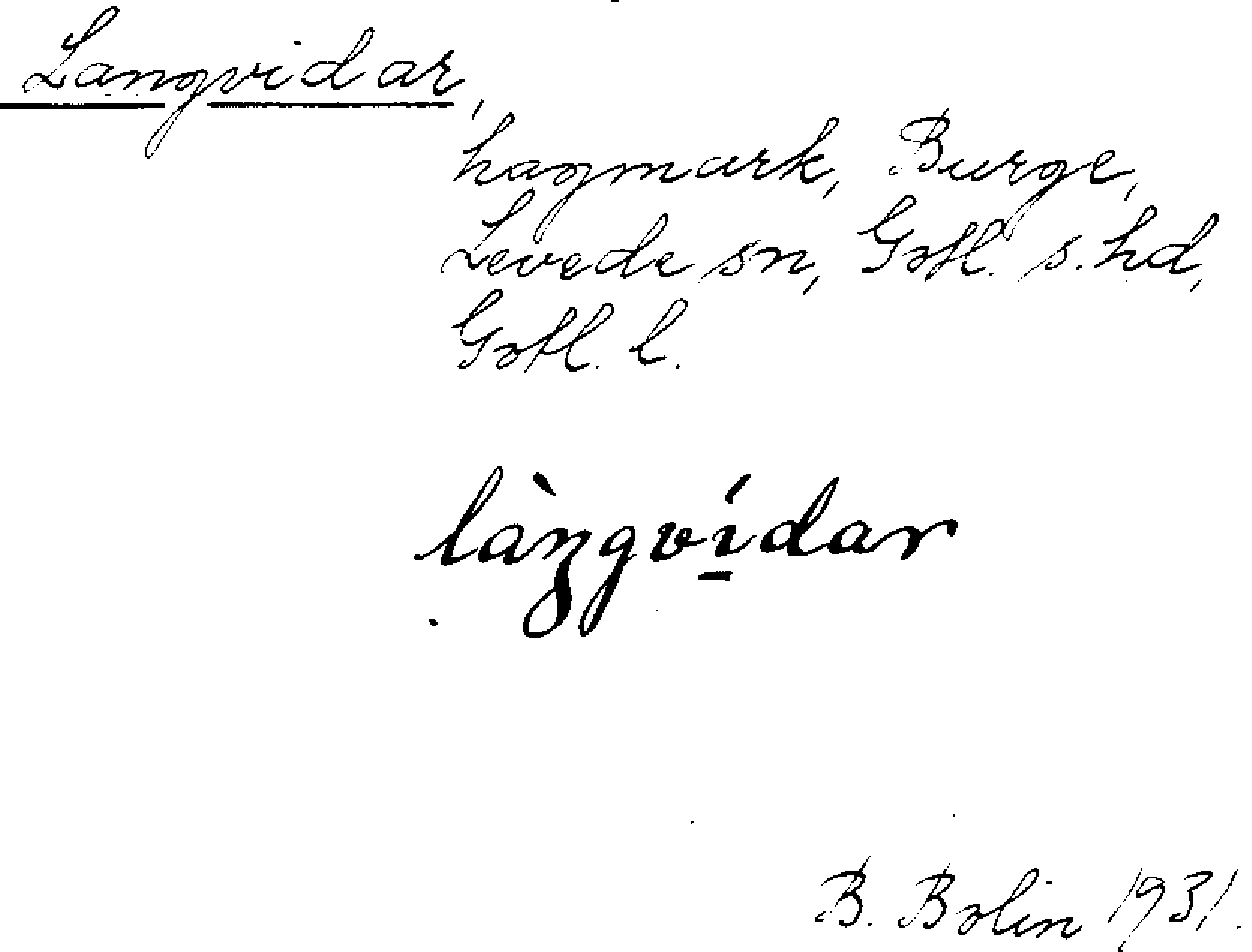 Langvidar,
hagmark, Burge,
Levede sn, Gotl. s. hd,
Gotl. l.
làŋgví̱dar
B. Bolin 1931.